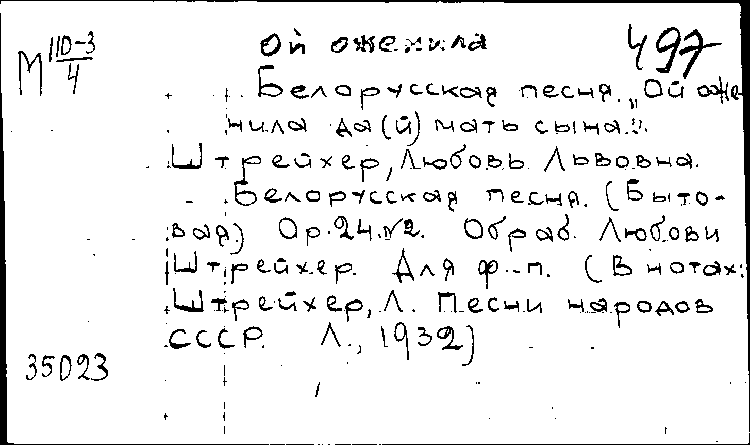 Ой оженила
497
М 110-3/4
Белорусская песня. „Ой оже-
нила да(й) мать сына."
Штрейхер, Любовь Львовна.
Белорусская песня. (Быто-
вая) Ор. 24. №2. Обраб. Любови
Штрейхер. Для ф.-п. (В нотах:
Штрейхер, Л. Песни народов
СССР. Л., 1932)
35023